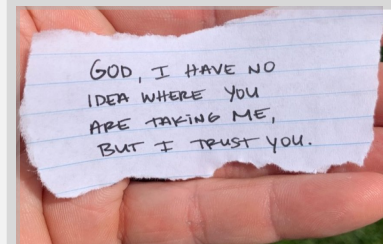 GOD, I HAVE NO
IDEA WHERE YOU
ARE TAKING ME,
BUT I TRUST YOU.